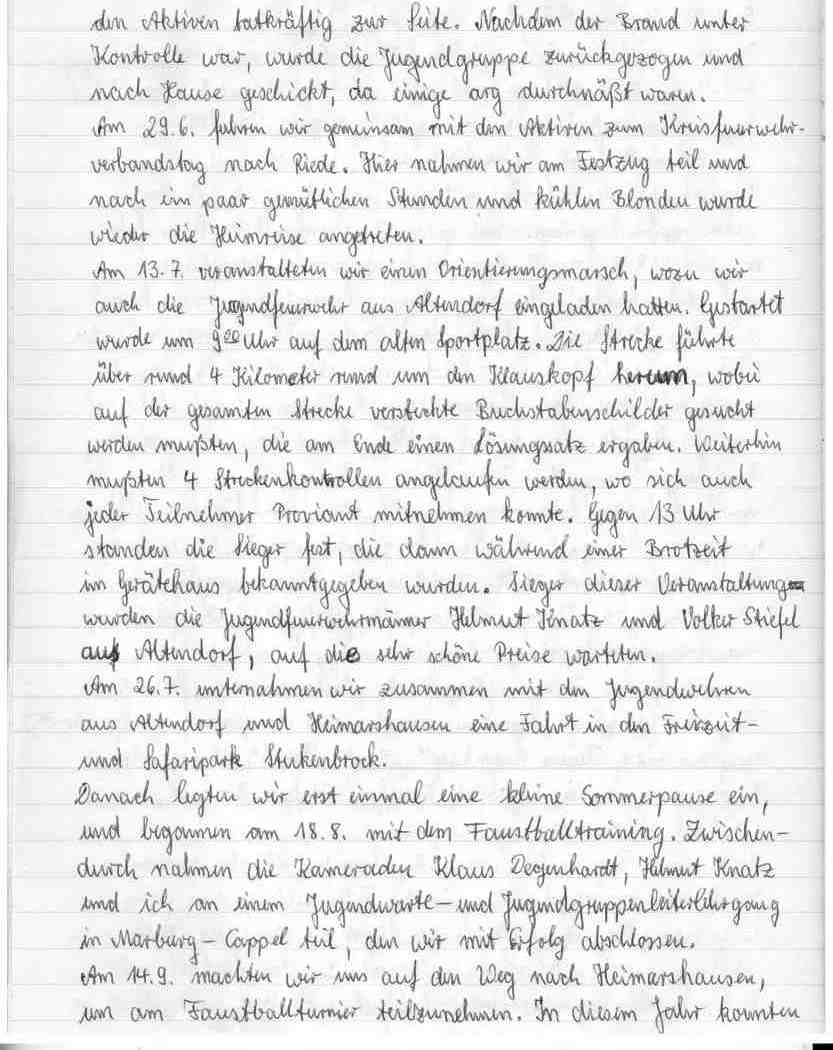 den Aktiven tatkräftig zur Seite. Nachdem der Brand unter
Kontrolle war, wurde die Jugendgruppe zurückgezogen und
nach Hause geschickt, da einige arg durchnäßt waren.
Am 29.6. fuhren wir gemeinsam mit den Aktiven zum Kreisfeuerwehr-
verbandstag nach Riede. Hier nahmen wir am Festzug teil und
nach ein paar gemütlichen Stunden und kühlen Blonden wurde
wieder die Heimreise angetreten.
Am 13.7. veranstalteten wir einen Orientierungsmarsch, wozu wir
auch die Jugendfeuerwehr aus Altendorf eingeladen hatten. Gestartet
wurde um 9⁰⁰ Uhr auf dem alten Sportplatz. Die Strecke führte
über rund 4 Kilometer rund um den Klauskopf herum, wobei
auf der gesamten Strecke versteckte Buchstabenschilder gesucht
werden mußten, die am Ende einen Lösungssatz ergaben. Weiterhin
mußten 4 Streckenkontrollen angelaufen werden, wo sich auch
jeder Teilnehmer Proviant mitnehmen konnte. Gegen 13 Uhr
standen die Sieger fest, die dann während einer Brotzeit
im Gerätehaus bekanntgegeben wurden. Sieger dieser Veranstaltung
wurden die Jugendfeuerwehrmänner Helmut Knatz und Volker Stiefel
aus Altendorf, auf die sehr schöne Preise warteten.
Am 26.7. unternahmen wir zusammen mit den Jugendwehren
aus Altendorf und Heimarshausen eine Fahrt in den Freizeit-
und Safaripark Stukenbrock.
Danach legten wir erst einmal eine kleine Sommerpause ein,
und begannen am 18.8. mit dem Faustballtraining. Zwischen-
durch nahmen die Kameraden Klaus Degenhardt, Helmut Knatz
und ich an einem Jugendwarte- und Jugendgruppenleiterlehrgang
in Marburg-Cappel teil, den wir mit Erfolg abschlossen.
Am 14.9. machten wir uns auf den Weg nach Heimarshausen,
um am Faustballturnier teilzunehmen. In diesem Jahr konnten